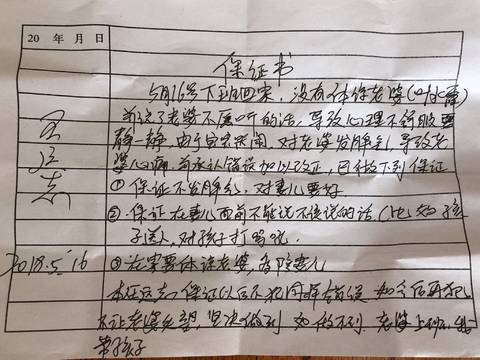 20 年 月 日
保证书
5月16号下班回家，没有体谅老婆(叶水萍)
前说了老婆不愿听的话，导致心理不舒服要
静一静，由于自家，对老婆发脾气，导致老
婆心痛，前承认错误加以改正，已做下列保证
①保证不发脾气，对妻儿要好
②保证在妻儿面前不能说不该说的话（比如孩
子送人，对孩子打骂吼
2018.5.16 ③在家要体谅老婆，多陪妻儿
本保证以后不犯同样错误 如今后再犯
不让老婆失望，坚决做到 如做不到 老婆上班，我
带孩子
王
志